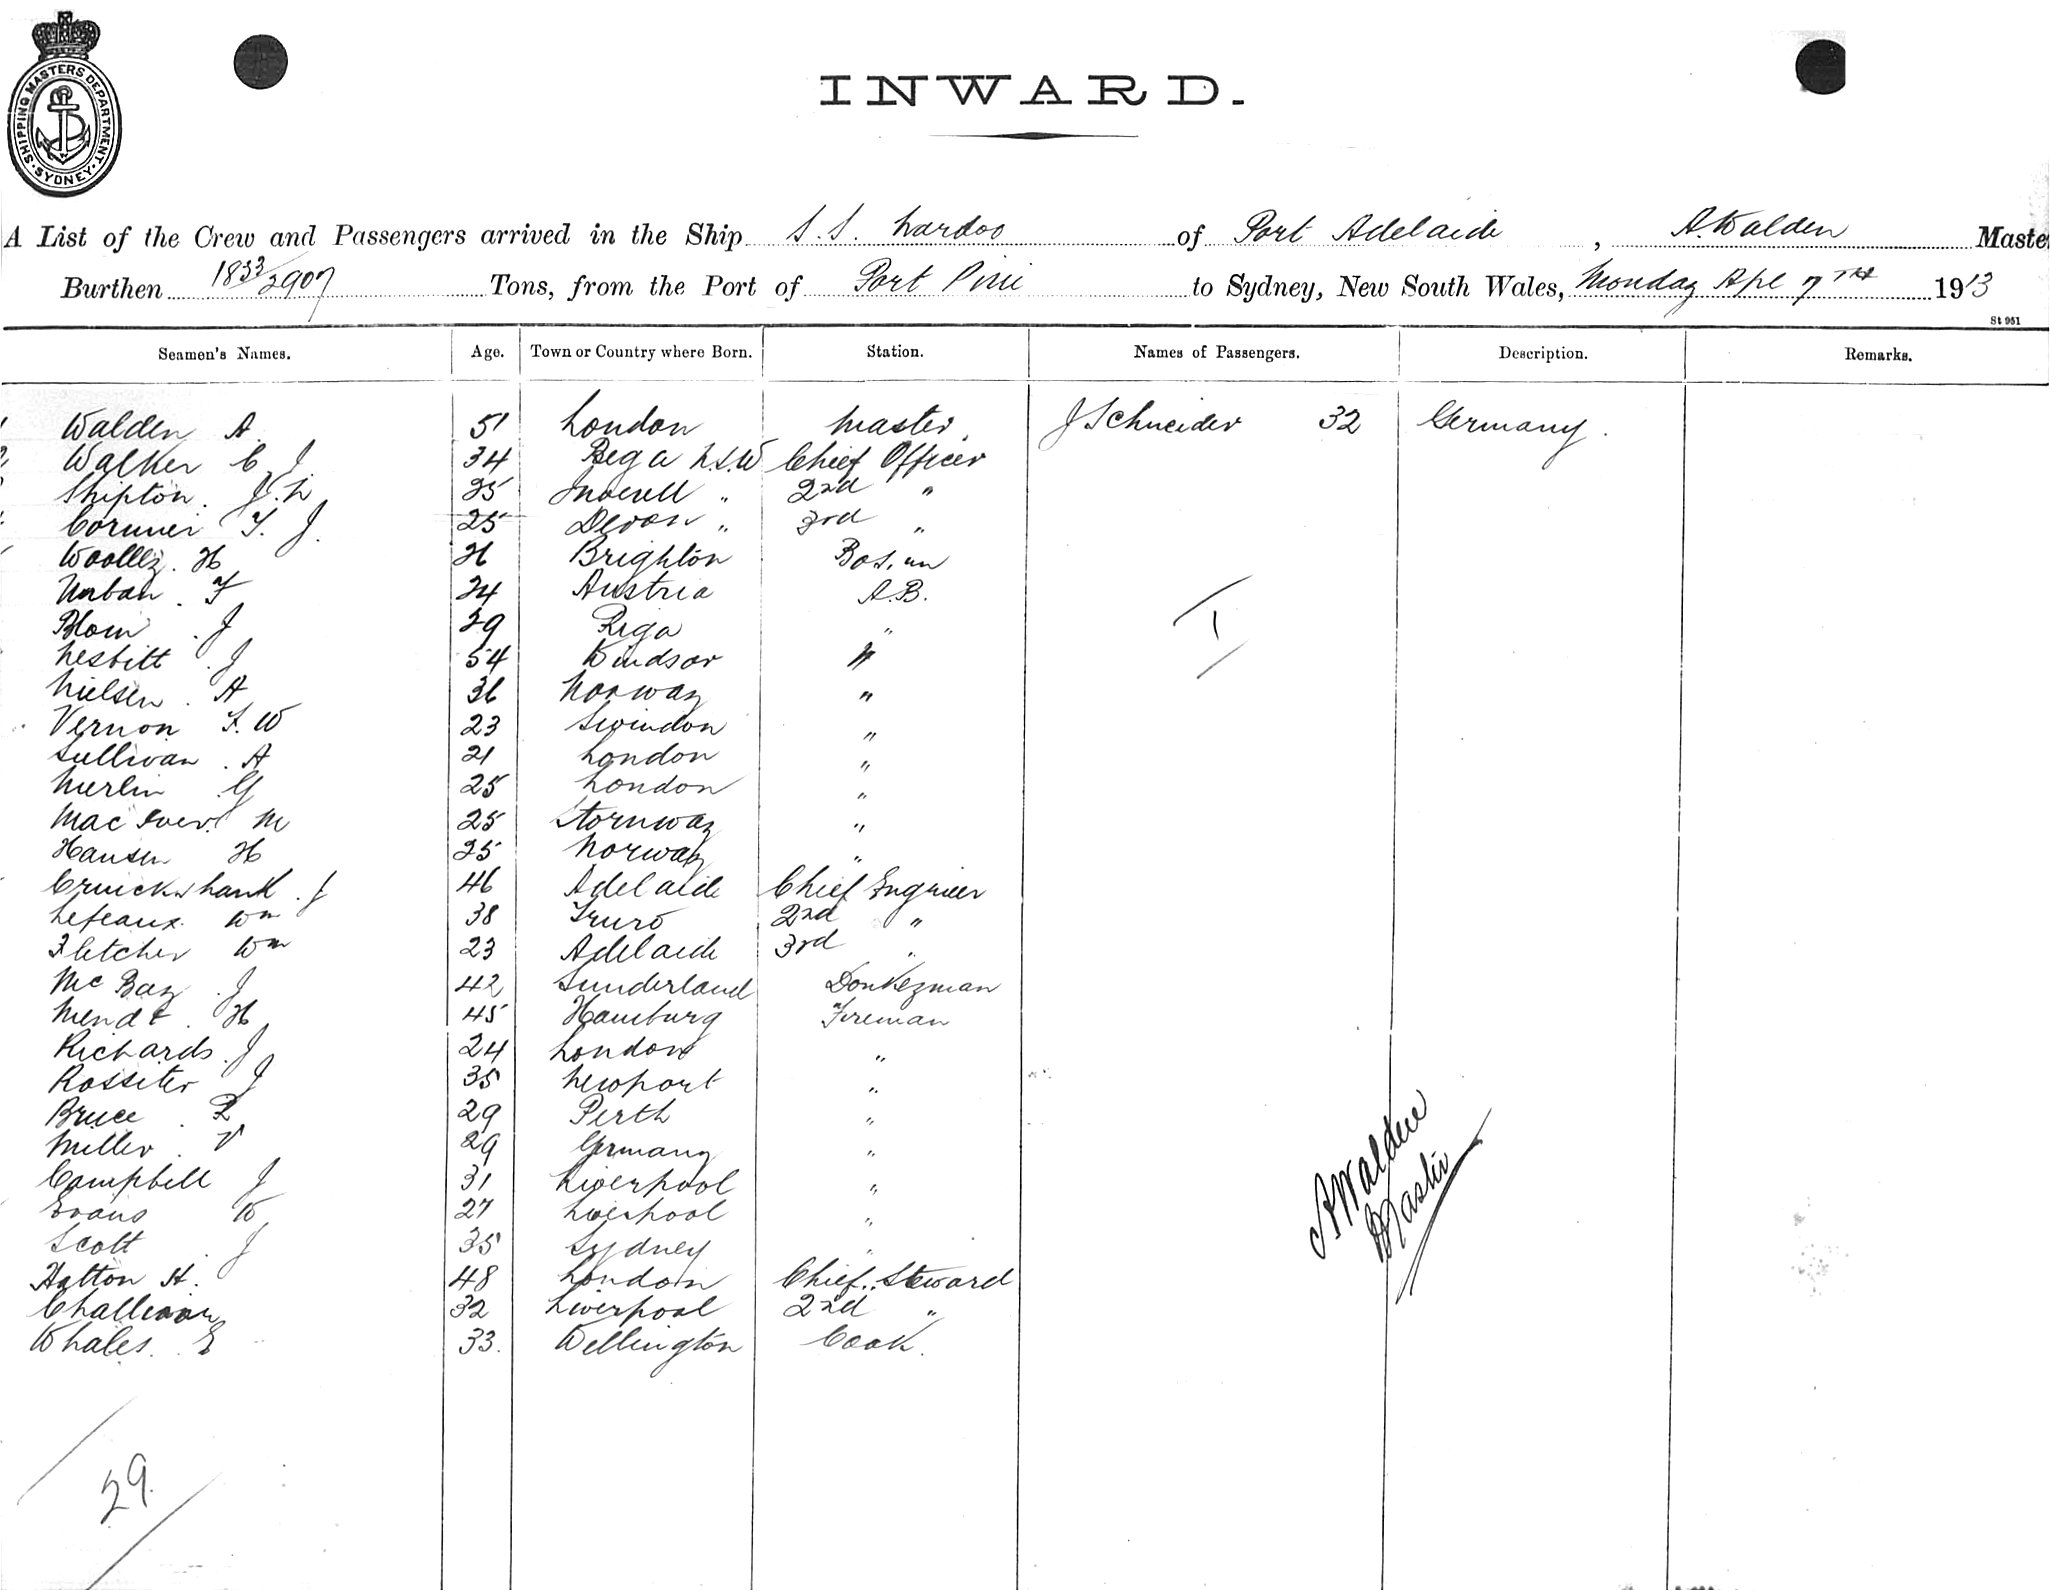 SHIPPING MASTERS DEPARTMENT. SYDNEY.
INWARD.
A List of the Crew and Passengers arrived in the Ship S.S. Lardoo of Port Adelaide, A. Walden Master
Burthen 1833/2907 Tons, from the Port of Port Pirie to Sydney, New South Wales, Monday Apl 7th 1913
St 961
Seamen's Names. Age. Town or Country where Born. Station. Names of Passengers. Description. Remarks.
Walden A. 51 London Master J Schneider 32 Germany.
Walker C. J. 34 Bega N.S.W Chief Officer
Shipton. J. L 25 Inverell " 2nd "
T. J. 25 Devon " 3rd "
Woolley. H 26 Brighton Bos.un
Urban. F 24 Austria A.B.
Blom. J 29 Riga "
Nesbitt. J 54 Windsor "
Nielsen. A 36 Norway "
Vernon F. W 23 Swindon "
Sullivan. A 21 London "
Merlin G 25 London "
MacIver. M 25 Stornway "
Hansen H 25 Norway "
Cruickshank. J 46 Adelaide Chief Engineer
Lefeaux. Wm 38 Truro 2nd "
Fletcher Wm 23 Adelaide 3rd "
McBay. J 42 Sunderland Donkeyman
Mendt. H 45 Hamburg Fireman
Richards. J 24 London "
Rossiter J 35 Newport "
Bruce. R 29 Perth "
Miller. V 29 Germany "
Campbell J 31 Liverpool "
Evans W 27 Liverpool "
Scott. J 35 Sydney "
Hatton H. 48 London Chief Steward
32 Liverpool 2nd "
Whales. E 33. Wellington Cook.
1
A Walden
Master
29.